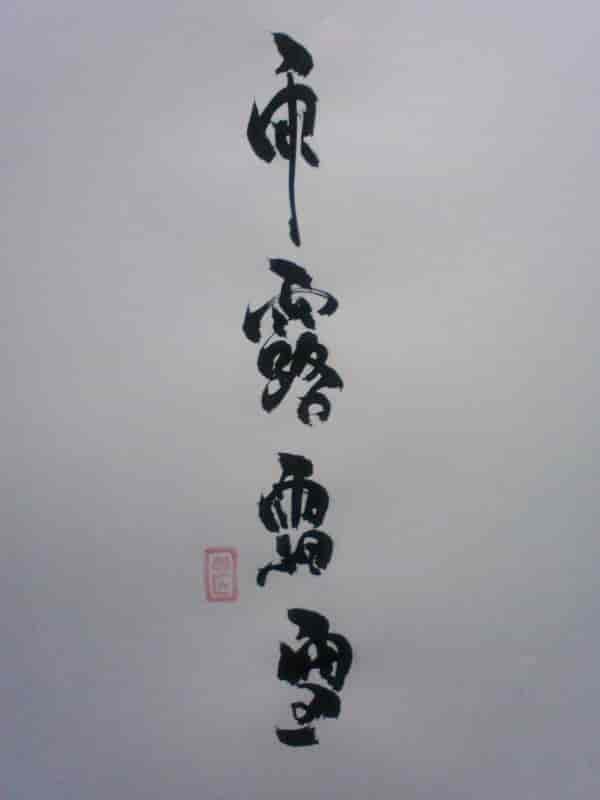 雨露霜雪